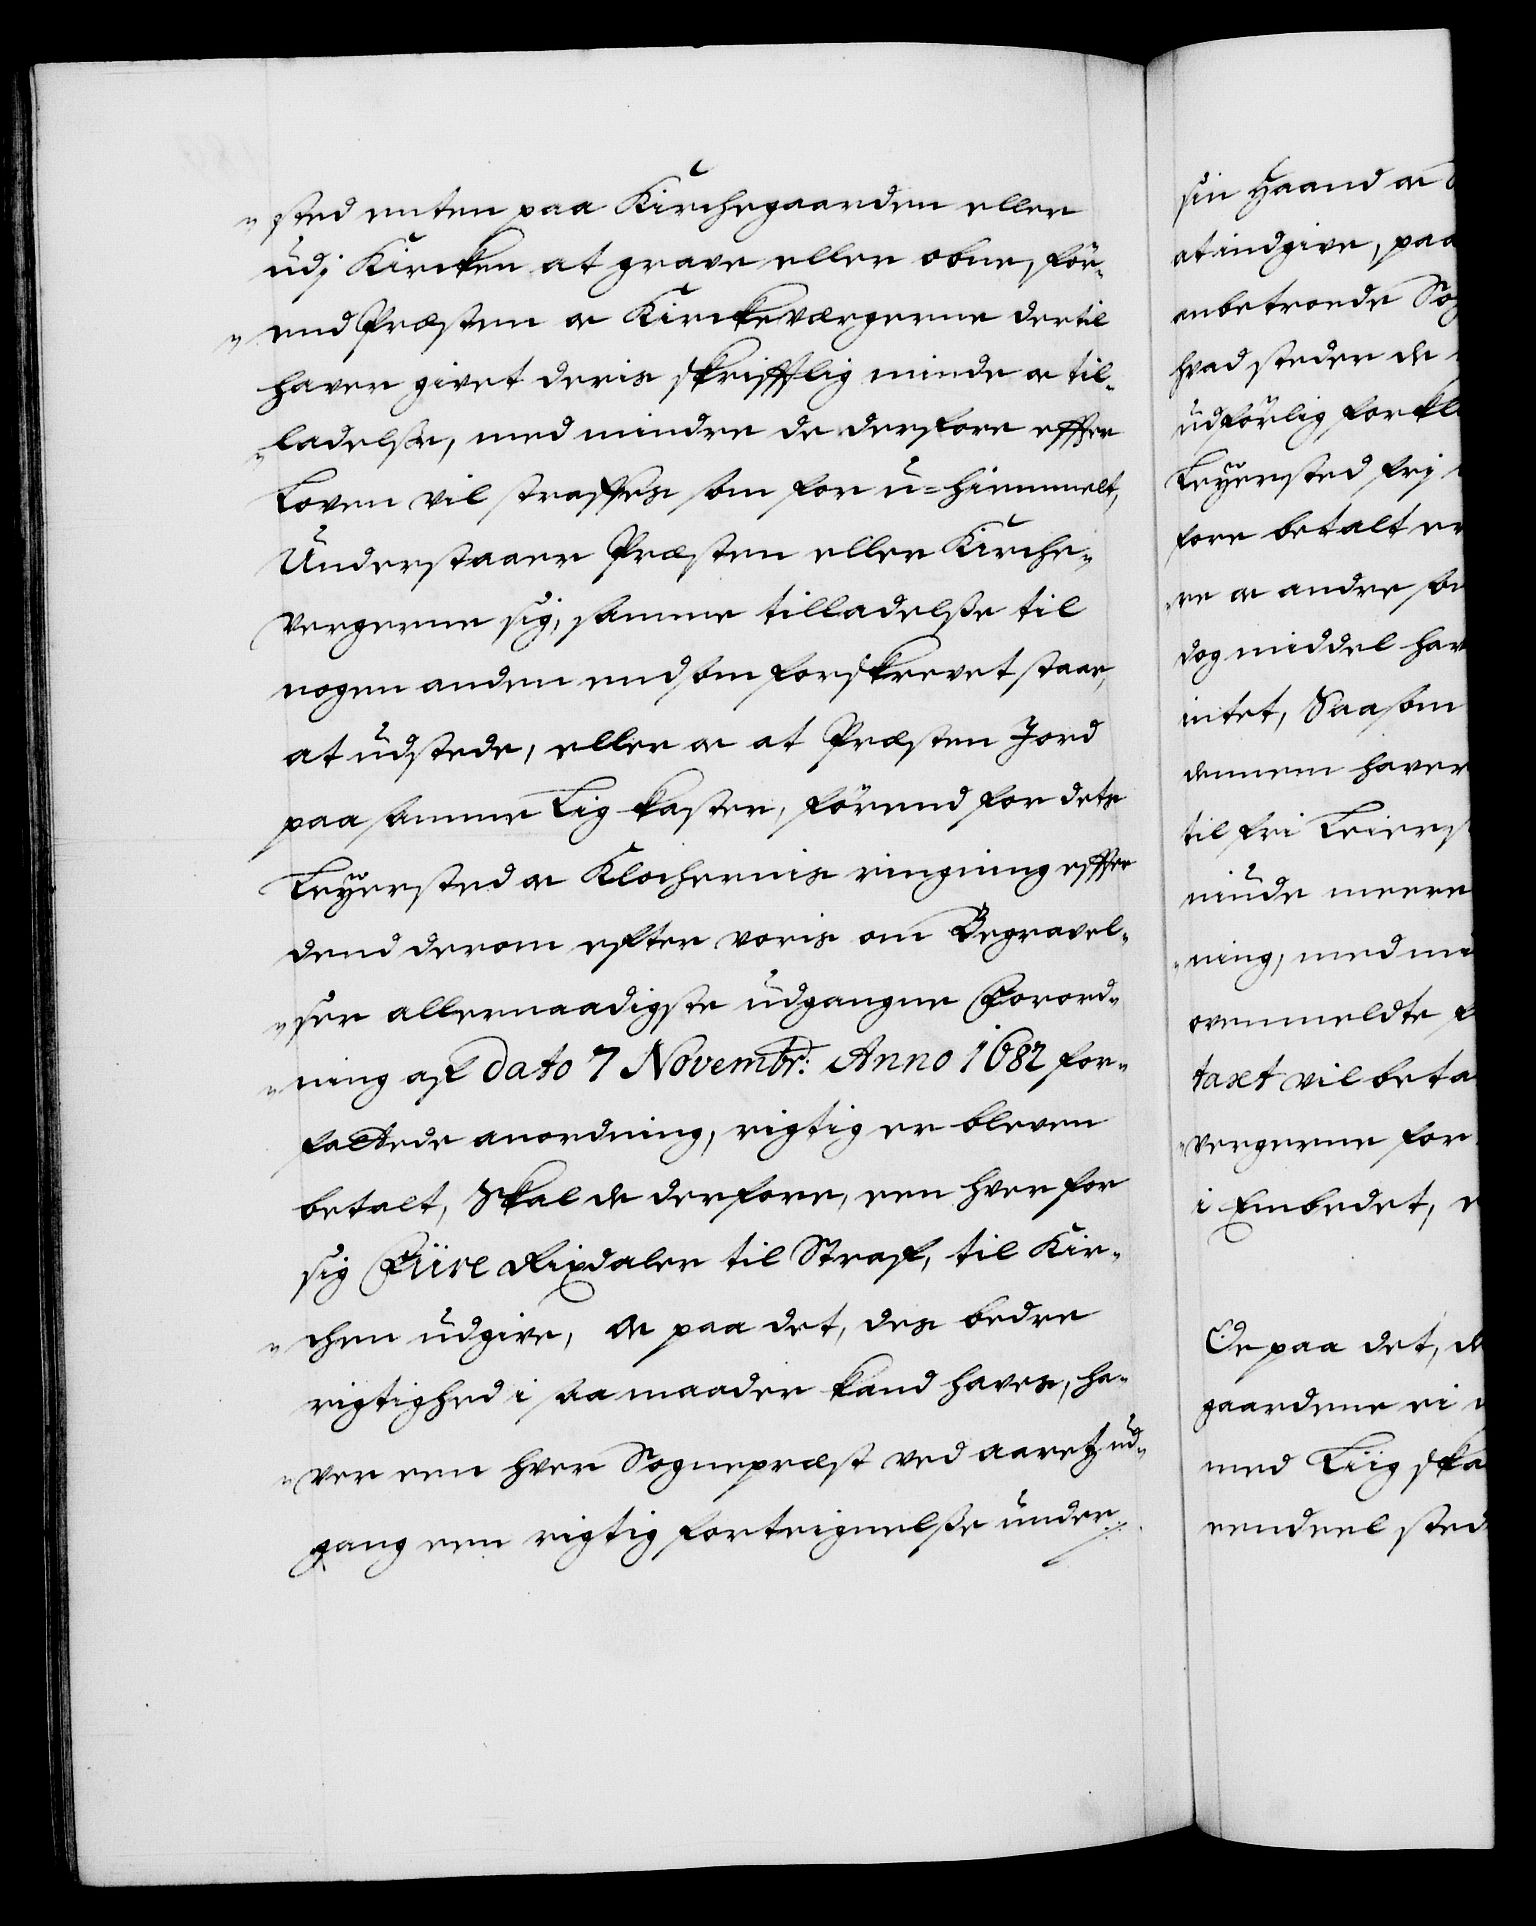 „sted enten paa Kirchegaarden eller
udj Kircken at grave eller obne, för-
„end Præsten og Kirckeværgerne dertil
haver givet deris skrifftlig minde og til-
„ladelsse, med mindre de derfore effter
Loven vil straffes som for u-hiemmelt,
Understaaer Præsten eller Kirche-
vergerne sig, samme tilladelsse til
nogen anden end som forskrevet staar,
at udstede, eller og at Præsten Jord
paa samme Lig kaster, förend for dets
Leyersted og Klochernis ringning effter
dend derom efter voris om Begravel-
„ser allernaadigste udgangne Forord-
„ning af dato 7 Novembr: Anno 1682 for-
fattede anordning, rigtig er bleven
betalt, Skal de derfore, een hver for
sig Fiire Rixdaler til Straf, til Kir-
„chen udgive, og paa det, des bedre
rigtighed i saa maader kand haves, ha-
„ver een hver Sognepræst ved aaretz ud-
gang een rigtig forteignelsse under
sin Haand og
at indgive, paa
anbetroede Sog
hvad steder de
udförlig forkla
Leyersted frj
fore betalt er
„re og andre
dog middel hav
intet, Saasom
dennem haver
til fri Leierst
minde meere
„ning, med mi
ovenmeldte
taxt vil beta
„vergerne for
i Embedet,
Og paa det, de
gaardene ei
med Liig ska
eendeel sted